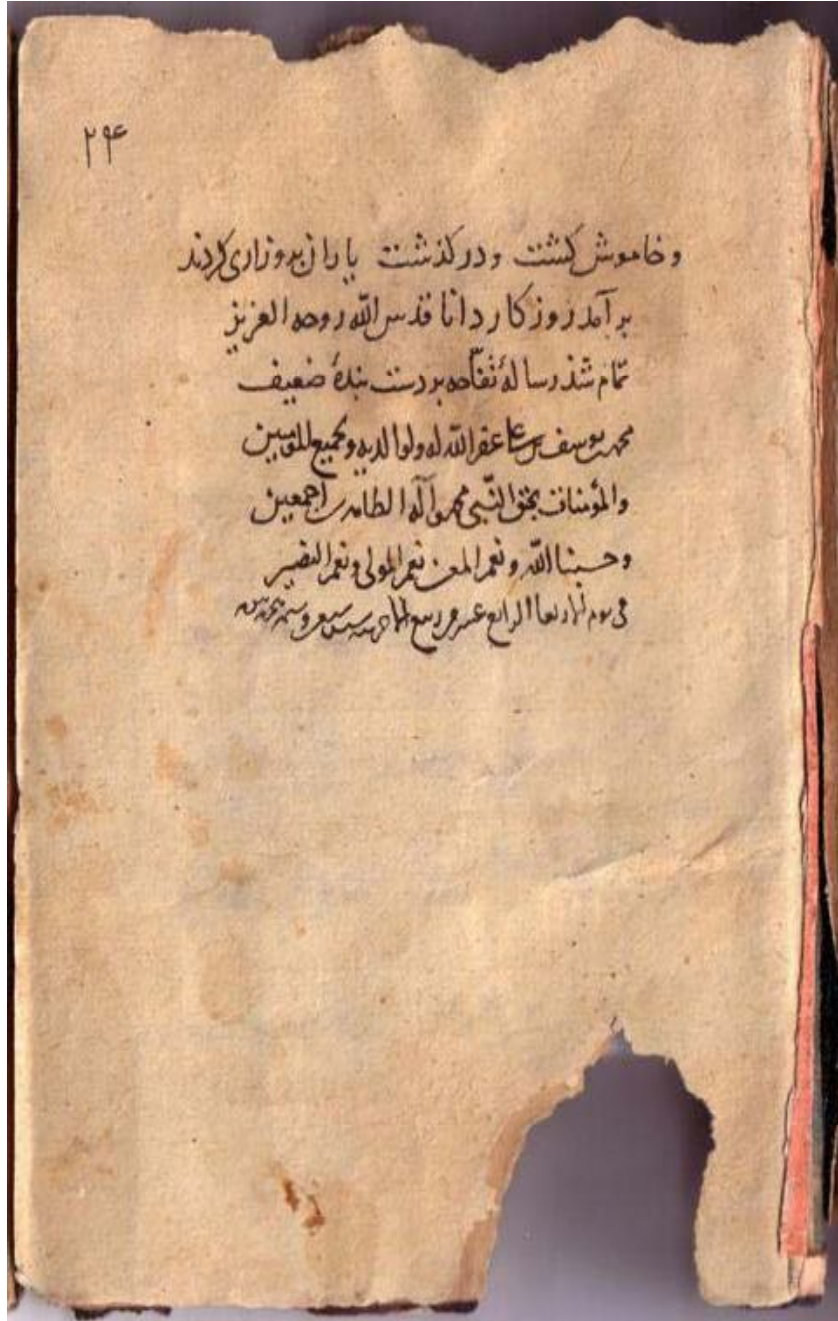 ۲۹۴
و خاموش کشت و درکذشت یاران برو زاری کردند
برآمد روزکار دانا قدس الله روحه العزیز
تمام شذ رسالهٔ تفّاحه بر دست بندهٔ ضعیف
محمد یوسف غفر الله له ولوالدیه ولجمیع المؤمنین
والمؤمنات بحق النّبی محمد وآله الطاهرین اجمعین
وحسبنا الله ونعم المعین نعم المولی ونعم النصیر
فی یوم الرابع عشر ربیع